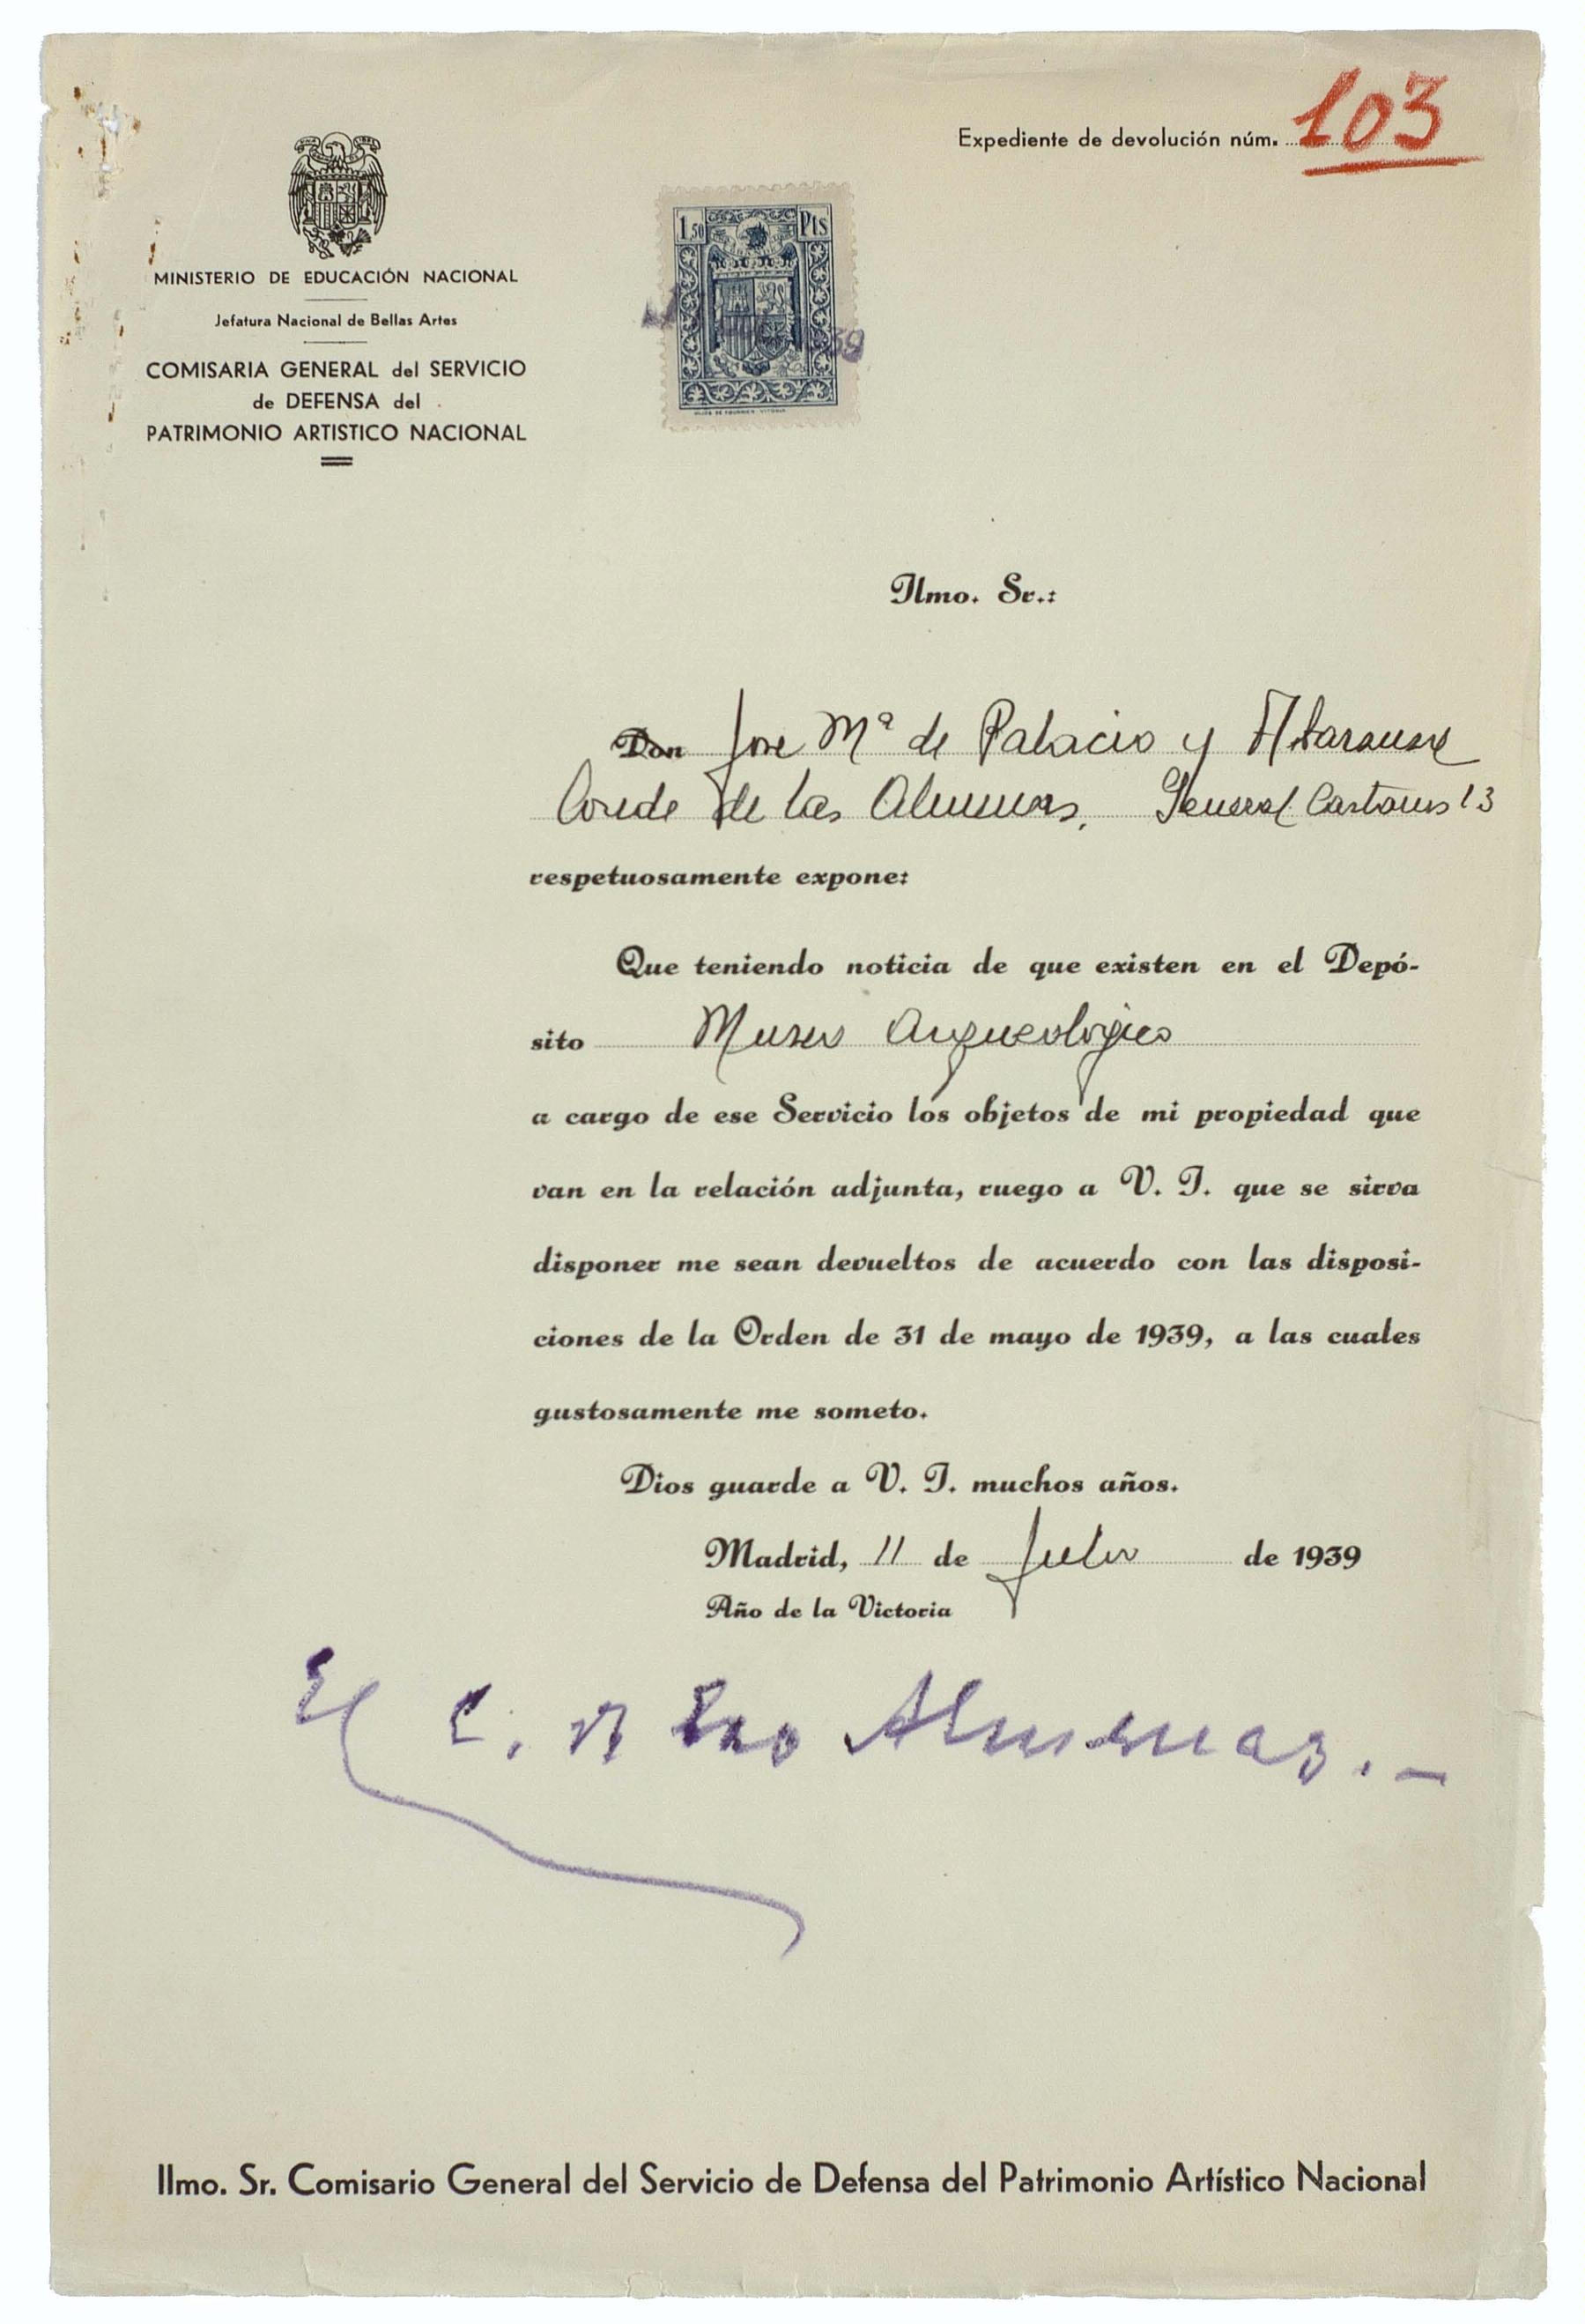 Expediente de devolución núm. 103
MINISTERIO DE EDUCACIÓN NACIONAL
Jefatura Nacional de Bellas Artes
COMISARIA GENERAL del SERVICIO
de DEFENSA del
PATRIMONIO ARTISTICO NACIONAL
1,50 Pts
39
Ilmo. Sr.:
Don Jose Mª de Palacio y
Conde de las Almenas, General Castaños 13
respetuosamente expone:
Que teniendo noticia de que existen en el Depó-
sito Museo Arqueologico
a cargo de ese Servicio los objetos de mi propiedad que
van en la relación adjunta, ruego a V. I. que se sirva
disponer me sean devueltos de acuerdo con las disposi-
ciones de la Orden de 31 de mayo de 1939, a las cuales
gustosamente me someto.
Dios guarde a V. I. muchos años.
Madrid, 11 de Julio de 1939
Año de la Victoria
El C. de las Almenas.-
Ilmo. Sr. Comisario General del Servicio de Defensa del Patrimonio Artístico Nacional